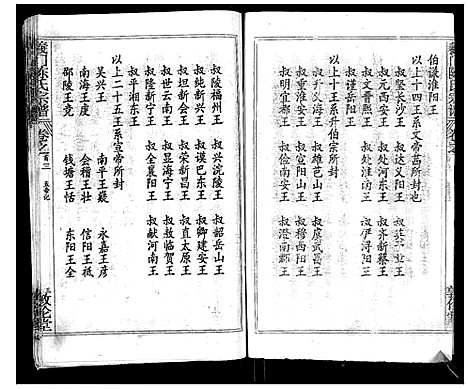 伯谦淮阳王
以上十四王系文帝茜所封也
叔坚长沙王 叔达义阳王
叔元西安王 叔齐新蔡王
叔文晋熙王 叔处河东王
叔谨岳阳王 浔阳王
以上十王系升伯宗所封
叔升义海王 叔虞武昌王
叔宣山阳王 叔雄芭山王
叔俭南安王 叔穆西阳王
叔明宜都王 叔澄南郡王
叔陵福州王 叔兴沅陵王 叔韶岳山王
叔纯新兴王 叔谟巴东王 叔卿建安王
叔坦新会王 叔荣新昌王 叔直太原王
叔匡云南王 叔显海宁王 叔敖临贺王
叔隆新宁王 叔全襄阳王 叔献河南王
叔平湘东王
以上二十五王系宣帝所封
吴兴王 南平王嶷 永嘉王彦
南海王虔 会稽王壮 信阳王祇
邵陵王兢 钱塘王恬 东阳王全
义门陈氏宗谱 卷之首三 五帝记
敦伦堂